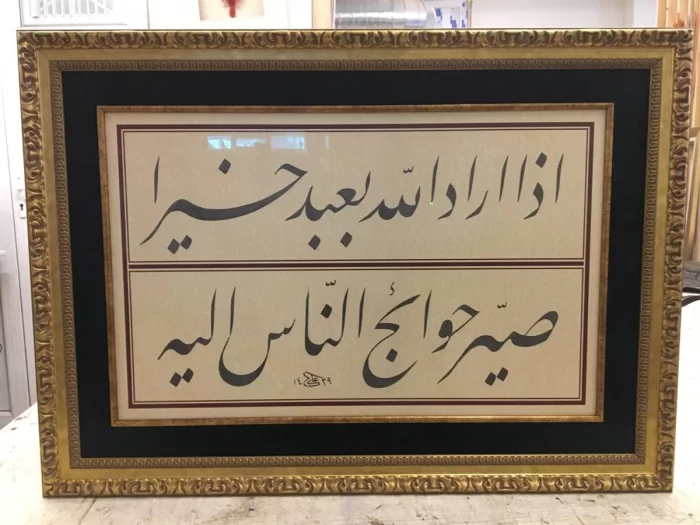 اذا اراد الله بعبد خيرا
صيّر حوائج النّاس اليه
١٤٢٩